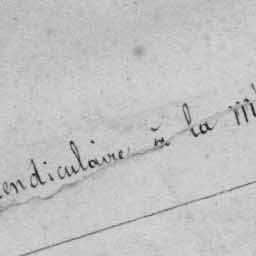 endiculaire à la m